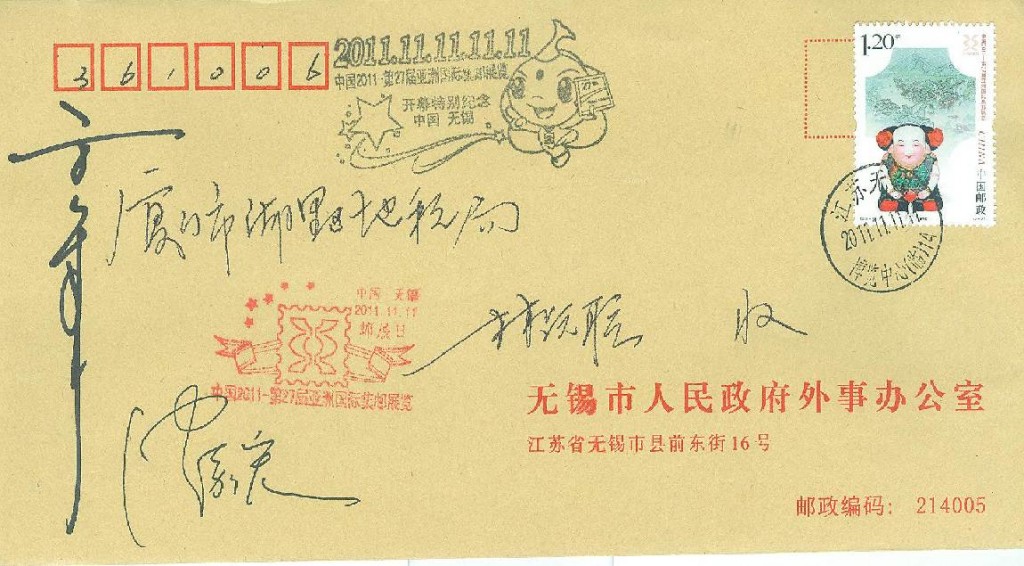 361006
2011.11.11.11.11
中国2011-第27届亚洲国际集邮展览
开幕特别纪念
中国 无锡
1.20元
CHINA 中国邮政
江苏无
2011.11.11.11
博览中心(临)1A
厦门市湖里地税局
收
中国 无锡
2011.11.11
中国2011-第27届亚洲国际集邮展览
无锡市人民政府外事办公室
江苏省无锡市县前东街16号
邮政编码: 214005